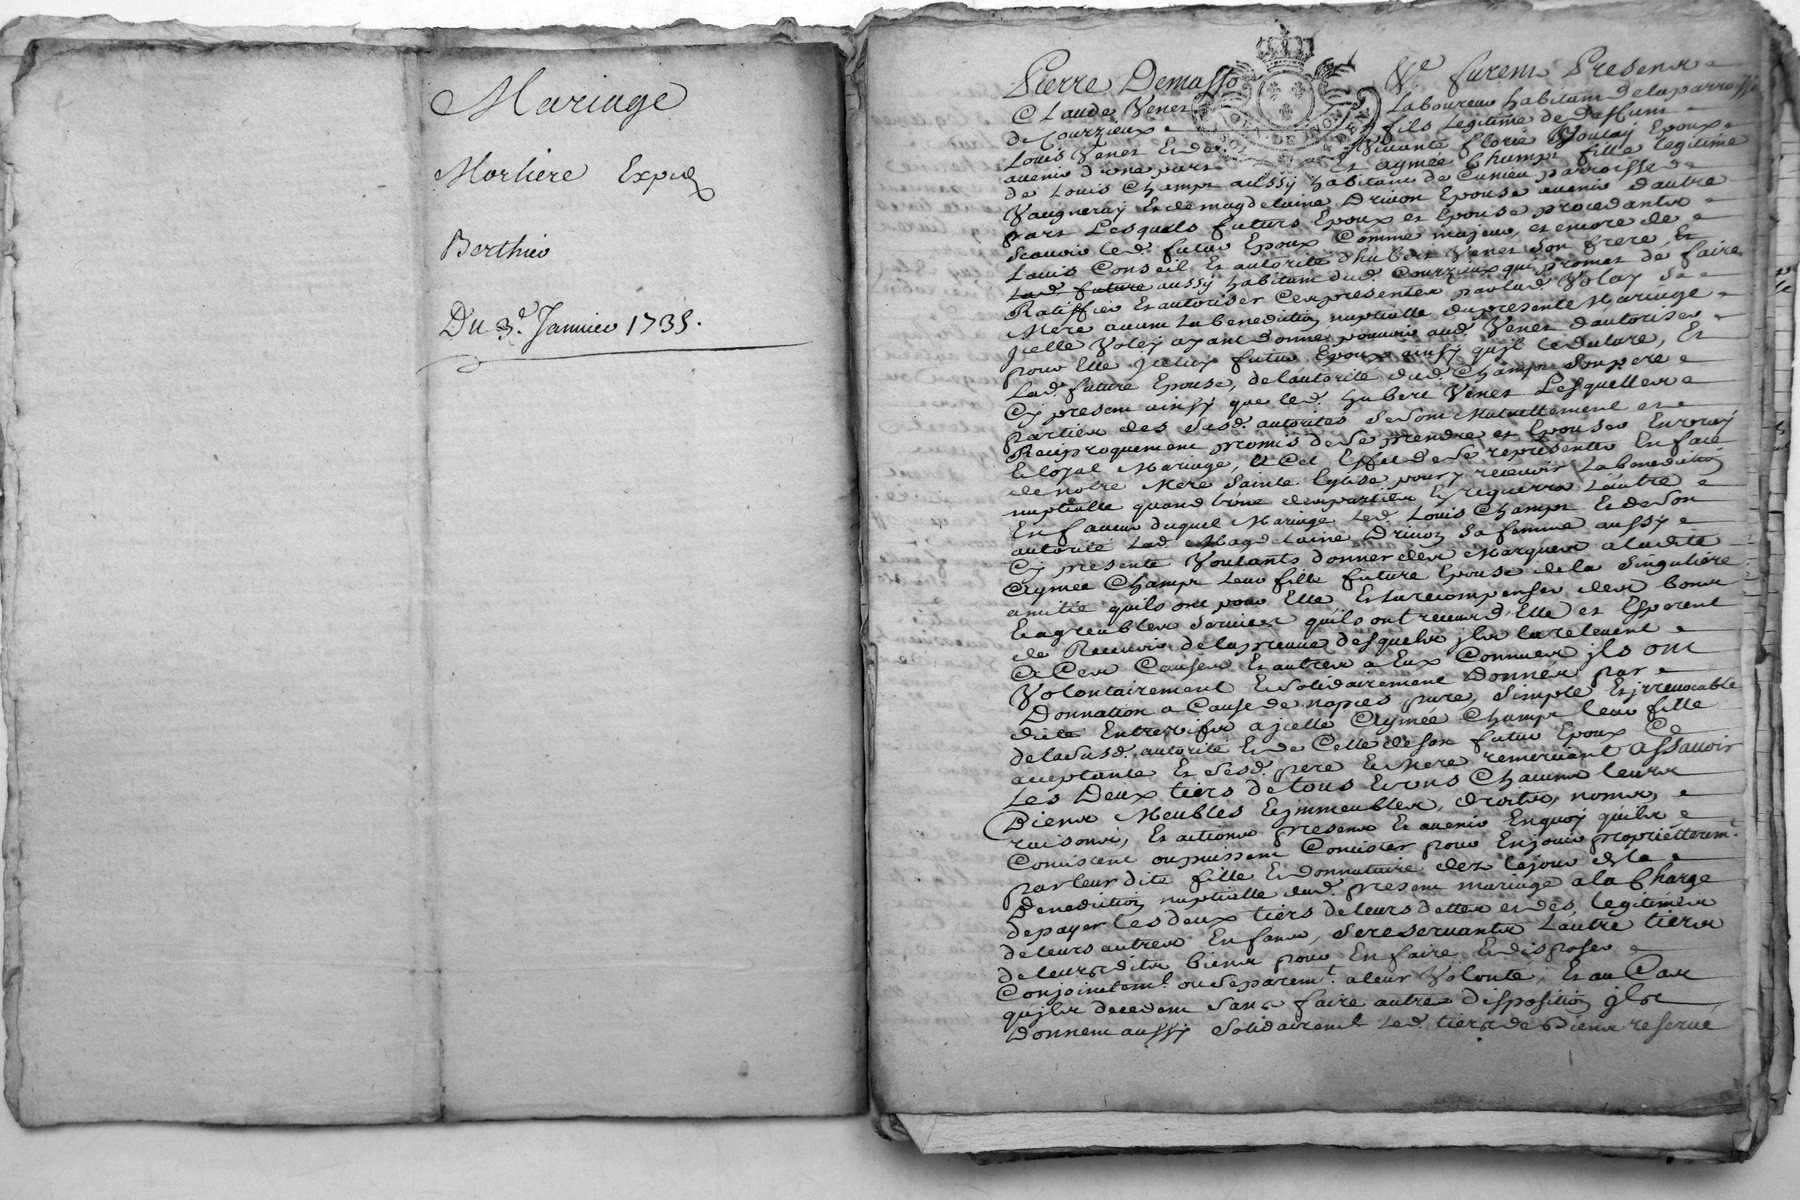 Mariage
Morliere Expié
Berthieu
Du 3e. Januier 1735.
Pierre Demasso Ve. furent Presens
Claude Venet Laboureur habitant de la parroisse
de Courzieux fils Legitime de deffunt
Louis Venet Et de Viuante florie Voulay Epoux
auenir d'une part Et aymée Champt fille legitime
de Louis Champt aussy habitant de Cunieu parroisse de
Vaugneray Et de magdelaine Driuon Epouse auenir d'autre
part Lesquels futurs Epoux et Epouse procedants
Scauoir led. futur Epoux Comme majeur, et encore de
Lauis Conseil Et autorité d'hubert Venet son frere, Et
Lad. future aussy habitant dud. Courzieux qui promet de faire
Ratiffier Et autoriser Ces presentes par lad. Volay Sa
Mere auant La benediction nuptialle du present Mariage
Jcelle Voley ayant donné pouuoir aud. Venet d'autoriser
pour Elle Jceluy futur Epoux ainsy qu'jl le declare, Et
Lad. future Epouse, de l'autorité dud. Champt Son pere
Cy present ainsy que led. hubert Venet Lesquelles
parties des Susd. autorités Se Sont Mutuellement et
Reciproquement promis de Se prendre et Epouser En vray
Et loyal Mariage, a Cet Effet de Se representer En face
de notre Mere Sainte Eglise pour y receuoir La benediction
nuptialle quand l'une des parties En requerra L'autre
En faueur duquel Mariage Led. Louis Champt Et de Son
autorité Lad. Magdelaine Driuon Sa femme aussy
Cy presente Voulants donner des Marques a ladite
Aymée Champt leur fille future Epouse de la Singuliere
amitié qu'ils ont pour Elle, Et la recompenser des bons
Et agreables Seruices qu'ils ont receus d'Elle et Esperent
de Receuoir de la preuue desquels jls la releuent
A Ces Causes Et autres a Eux Connues jls ont
Volontairement Et Solidairement Donnés par
Donnation a Cause de nopces pure, Simple Et jrreuocable
dite Entre vifs a jcelle Aymée Champt leur fille
de la Susd. autorité Et de Celle de son futur Epoux
acceptante Et Sesd. pere Et Mere remerciant Assauoir
Les Deux tiers de tous Et vns Chacuns leurs
Biens Meubles Et jmmeubles, droits, noms,
raisons, Et actions presens Et auenir En quoy qu'ils
Consistent ou puissent Consister pour En jouir propriettairemt.
par leur dite fille Et donnataire des le jour de la
Benediction nuptialle dud. present mariage a la Charge
de payer les deux tiers de leurs dettes et des legitimes
de leurs autres Enfans, Se reseruants L'autre tiers
de leurs dits biens pour En faire Et disposer
Conjoinctemt. ou Separemt. a leur Volonté, Et au Cas
qu'jls decedent Sans faire autre disposition jls
donnent aussy Solidairement Led. tiers de Biens reserué